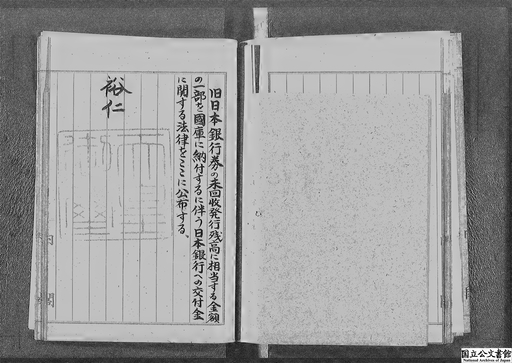 旧日本銀行券の未回收発行残高に相当する金額
の一部を國庫に納付するに伴う日本銀行への交付金
に関する法律をここに公布する、
裕仁
内
閣
国立公文書館
National Archives of Japan